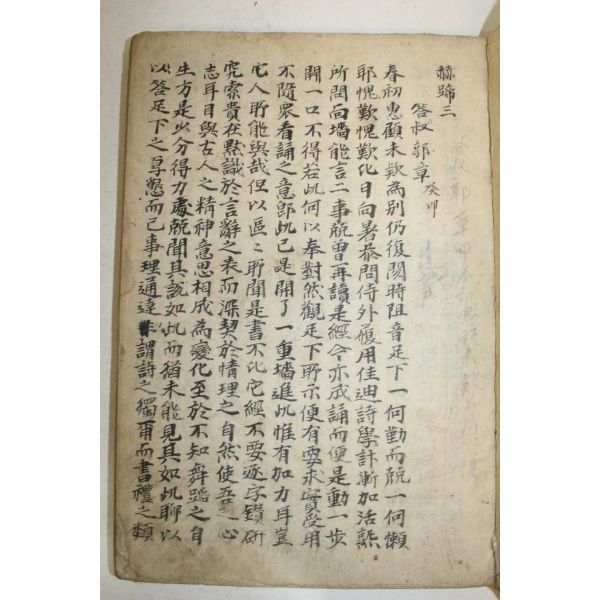 赫蹄三
答叔郭章 癸卯
春初惠顧未款為別仍復閱時阻音足下一何勤而兢一何懶
耶愧歎愧歎化日向暑恭問侍外履用佳迪詩學計漸加活熟
所問面墻能言二事兢曾再讀是經今亦成誦而便是動一步
開一口不得若此何以奉對然觀足下所示便有要求實受用
不隨衆看誦之意郎此已是開了一重墻進此惟有加力耳豈
它人所能與哉但以區〻所聞是書不比它經不要逐字鑽研
究索貴在默識於言辭之表而深契於情理之自然使吾之心
志耳目與古人之精神意思相成為變化至於不知舞蹈之自
生方是少分得力處兢聞其說如此而猶未能見真如此聊以
以答足下之辱懇而已事理通達非謂詩之獨甬而書禮之類